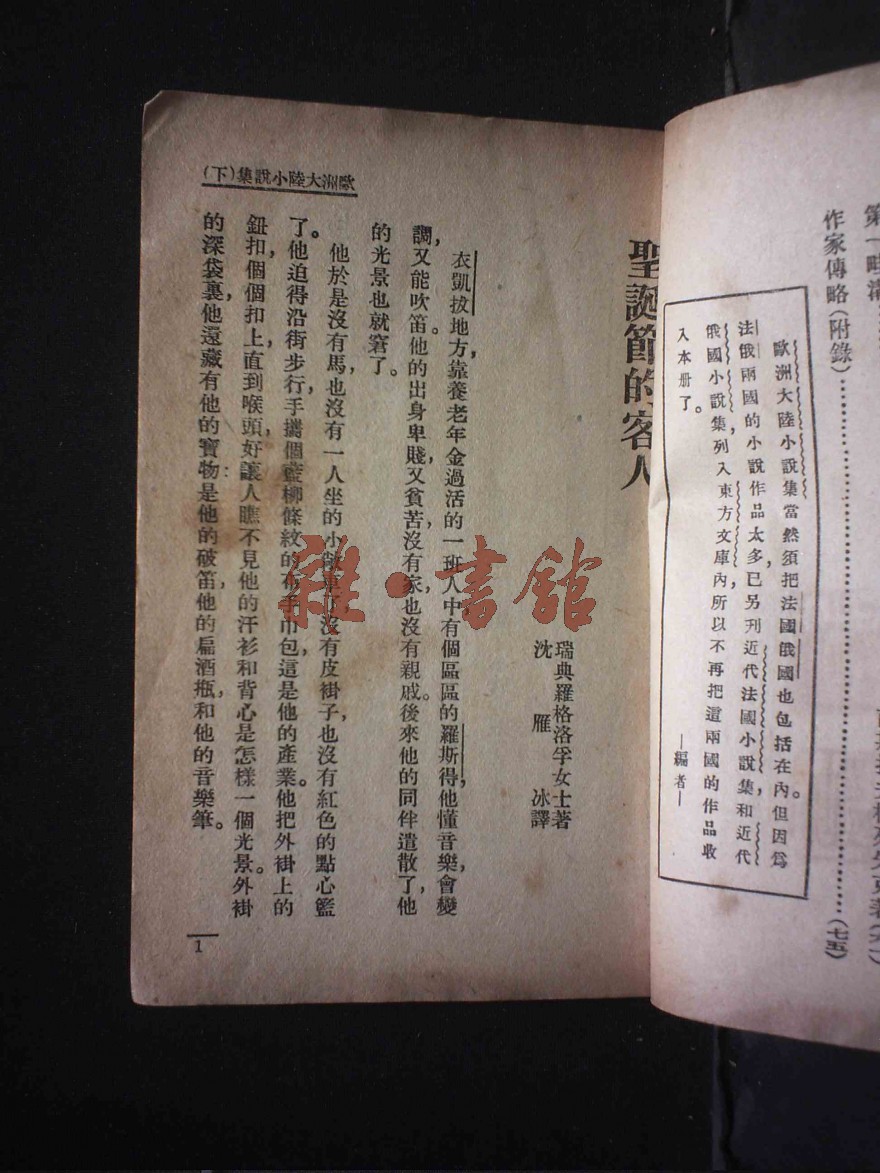 作家傳略(附錄)……………………(七五)
歐洲大陸小說集當然須把法國俄國也包括在內。但因爲
法俄兩國的小說作品太多,已另刊近代法國小說集和近代
俄國小說集,列入東方文庫內,所以不再把這兩國的作品收
入本册了。
—編者—
(下)集說小陸大洲歐
聖誕節的客人
瑞典羅格洛孚女士著
沈雁冰譯
衣凱拔地方,靠養老年金過活的一班人中,有個區區的羅斯得,他懂音樂,會變
調,又能吹笛。他的出身卑賤,又貧苦,沒有家,也沒有親戚。後來他的同伴遣散了,他
的光景也就窘了。
他於是沒有馬,也沒有一人坐的小敞車了,沒有皮褂子,也沒有紅色的點心籃
了。他迫得沿街步行,手攜個藍柳條紋的布手巾包,這是他的產業。他把外褂上的
鈕扣個個扣上,直到喉頭,好讓人瞧不見他的汗衫和背心是怎樣一個光景。外褂
的深袋裏,他還藏有他的寶物:是他的破笛,他的扁酒瓶,和他的音樂筆。
1
雜·書館